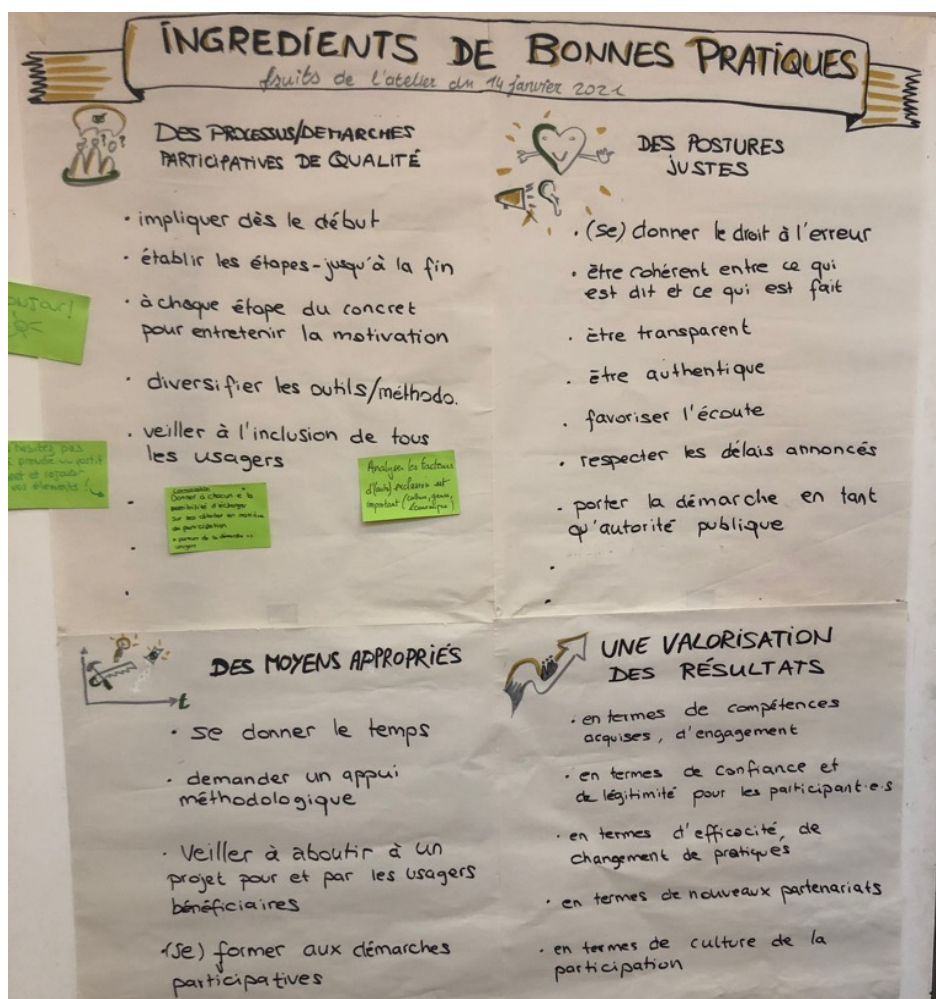 INGREDIENTS DE BONNES PRATIQUES
fruits de l'atelier du 14 janvier 2021
DES PROCESSUS/DEMARCHES
PARTICIPATIVES DE QUALITÉ
• impliquer dès le début
• établir les étapes - jusqu'à la fin
• à chaque étape du concret
pour entretenir la motivation
• diversifier les outils/méthodo.
• veiller à l'inclusion de tous
les usagers
Analyser les facteurs
d'(auto) exclusion est
important (culture, genre,
économique)
Donner à chacun·e la
possibilité d'échanger
de participation
usagers
vos éléments !
DES POSTURES
JUSTES
• (se) donner le droit à l'erreur
• être cohérent entre ce qui
est dit et ce qui est fait
• être transparent
• être authentique
• favoriser l'écoute
• respecter les délais annoncés
• porter la démarche en tant
qu'autorité publique
DES MOYENS APPROPRIÉS
t
• se donner le temps
• demander un appui
méthodologique
• Veiller à aboutir à un
projet pour et par les usagers
bénéficiaires
• (se) former aux démarches
participatives
UNE VALORISATION
DES RÉSULTATS
• en termes de compétences
acquises, d'engagement
• en termes de confiance et
de légitimité pour les participant·e·s
• en termes d'efficacité, de
changement de pratiques
• en termes de nouveaux partenariats
• en termes de culture de la
participation